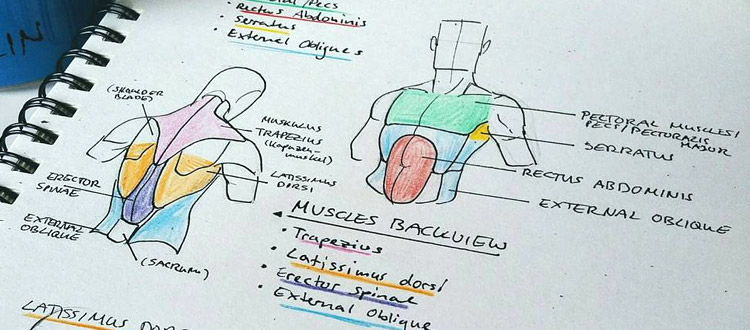 /Pecs
• Rectus Abdominis
• Serratus
• External Obliques
(SHOULDER
BLADE)
MUSKULUS
TRAPEZIUS
ERECTOR
SPINAE
LATISSIMUS
DORSI
EXTERNAL
OBLIQUE
(SACRUM)
PECTORAL MUSCLES/
PECS/PECTORALIS
MAJOR
SERRATUS
RECTUS ABDOMINIS
EXTERNAL OBLIQUE
MUSCLES BACKVIEW
• Trapezius
• Latissimus dorsi
• Erector Spinae
• External Oblique
LATISSIMUS DORS